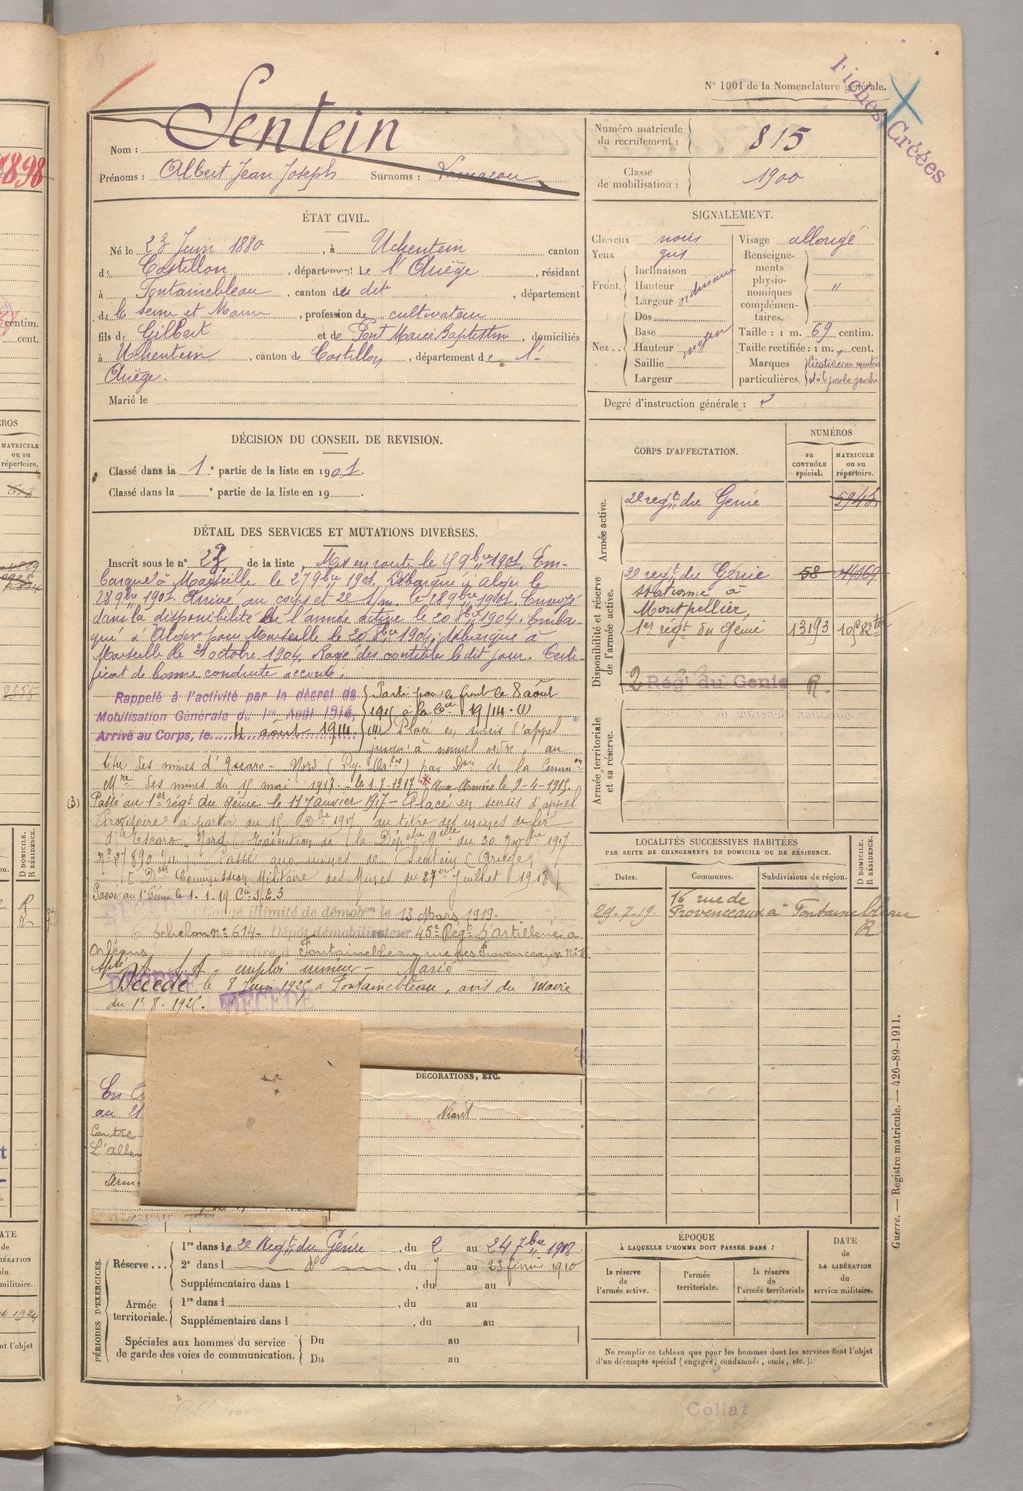 N° 1001 de la Nomenclature Générale.
Fiches Créées
Sentein
Nom :
Prénoms : Albert Jean Joseph Surnoms : Lamazou
Numéro matricule du recrutement : 815
Classe de mobilisation : 1900
ÉTAT CIVIL.
Né le 23 Juin 1880, à Uchentein canton
de Castillon, département de l'Ariège, résidant
à Fontainebleau, canton de dit, département
de la Seine et Marne, profession de cultivateur
fils de Gilbert et de Pont Marie Baptestin, domiciliés
à Uchentein, canton de Castillon, département de l'
Ariège.
Marié le
SIGNALEMENT.
Cheveux noirs
Yeux gris
Front. Inclinaison
Hauteur ordinaire
Largeur
Nez. Dos
Base
Hauteur moyen
Saillie
Largeur
Visage allongé
Renseignements physionomiques complémentaires. "
Taille : 1 m. 69 centim.
Taille rectifiée : 1 m. " cent.
Marques particulières. Cicatrices au menton et à la jambe gauche
Degré d'instruction générale : 2
DÉCISION DU CONSEIL DE REVISION.
Classé dans la 1e partie de la liste en 1901.
Classé dans la e partie de la liste en 19
CORPS D'AFFECTATION.
NUMÉROS
au CONTRÔLE spécial.
MATRICULE ou au répertoire.
Armée active.
2e regt du Genie 5943
Disponibilité et réserve de l'armée active.
2e regt du Génie 58
stationné à
Montpellier
1er régt du Génie 13193
2 Régt du Genie R.
Armée territoriale et sa réserve.
DÉTAIL DES SERVICES ET MUTATIONS DIVERSES.
Inscrit sous le n° 23 de la liste, Mis en route le 9bre 1901. Em-
barqué à Marseille le 27 9bre 1901. Débarqué à Alger le
28 9bre 1901. Arrivé au corps et 2e S/m. le 28 9bre 1901. Envoyé
dans la disponibilité de l'armée active le 20 8bre 1904. Embar-
qué à Alger pour Marseille le 20 8bre 1904, débarqué à
Marseille le 21 octobre 1904. Rayé des contrôles le dit jour. Certi-
ficat de bonne conduite accordé.
Rappelé à l'activité par le décret de
Mobilisation Générale du 1er Août 1914,
Arrivé au Corps, le 4 août 1914
Parti pour le front le 8 août
1915 à la Cie 19/14. (1)
(1) Placé en sursis d'appel
jusqu'à nouvel ordre, au
titre des mines d'Escaro-Nord (Py. Orles) par Don de la Comm
des mines du 15 mai 1917 aux Armées le 2-4-1918
(3) Passé au 1er régt du Génie le 11 Janvier 1917 - Placé en sursis d'appel
à partir du 15 Dbre 1917 au titre des usines de fer
d'Escaro-Nord (Exécution de la Dépêche Melle du 30 9bre 1917
n° 27890) Passé aux mines de Sentein (Ariège)
Don Commission Militaire des Mines du 27 Juillet 1918.
Passé au 1er Génie le 1-1-19 Cie S.E.3
Congé illimité de démob. le 13 Mars 1919.
échelon n° 614. Dépôt démobilisateur 45e Régt d'artillerie à
Orléans, Fontainebleau, rue des Provenceaux
emploi mineur - Marié
Décédé le 8 Juin 1926 à Fontainebleau, avis du Maire
du 1er 8-1926.
DÉCÉDÉ
LOCALITÉS SUCCESSIVES HABITÉES
PAR SUITE DE CHANGEMENTS DE DOMICILE OU DE RÉSIDENCE.
Dates. Communes. Subdivisions de région.
D DOMICILE. R RÉSIDENCE.
29-7-19. 16 rue de Provenceaux à Fontainebleau R
DÉCORATIONS, ETC.
Néant
PÉRIODES D'EXERCICES.
Réserve... 1re dans le 2e Régt du Génie, du 2 au 24 7bre 1908
2e dans l do, du 7 au 23 février 1910
Supplémentaire dans l, du au
Armée territoriale. 1re dans l, du au
Supplémentaire dans l, du au
Spéciales aux hommes du service de garde des voies de communication. Du au
Du au
ÉPOQUE
À LAQUELLE L'HOMME DOIT PASSER DANS :
la réserve de l'armée active.
l'armée territoriale.
la réserve de l'armée territoriale
DATE de LA LIBÉRATION du service militaire.
Ne remplir ce tableau que pour les hommes dont les services font l'objet
d'un décompte spécial (engagés, condamnés, omis, etc.).
Guerre. — Registre matricule. — 426-89-1911.
Collat